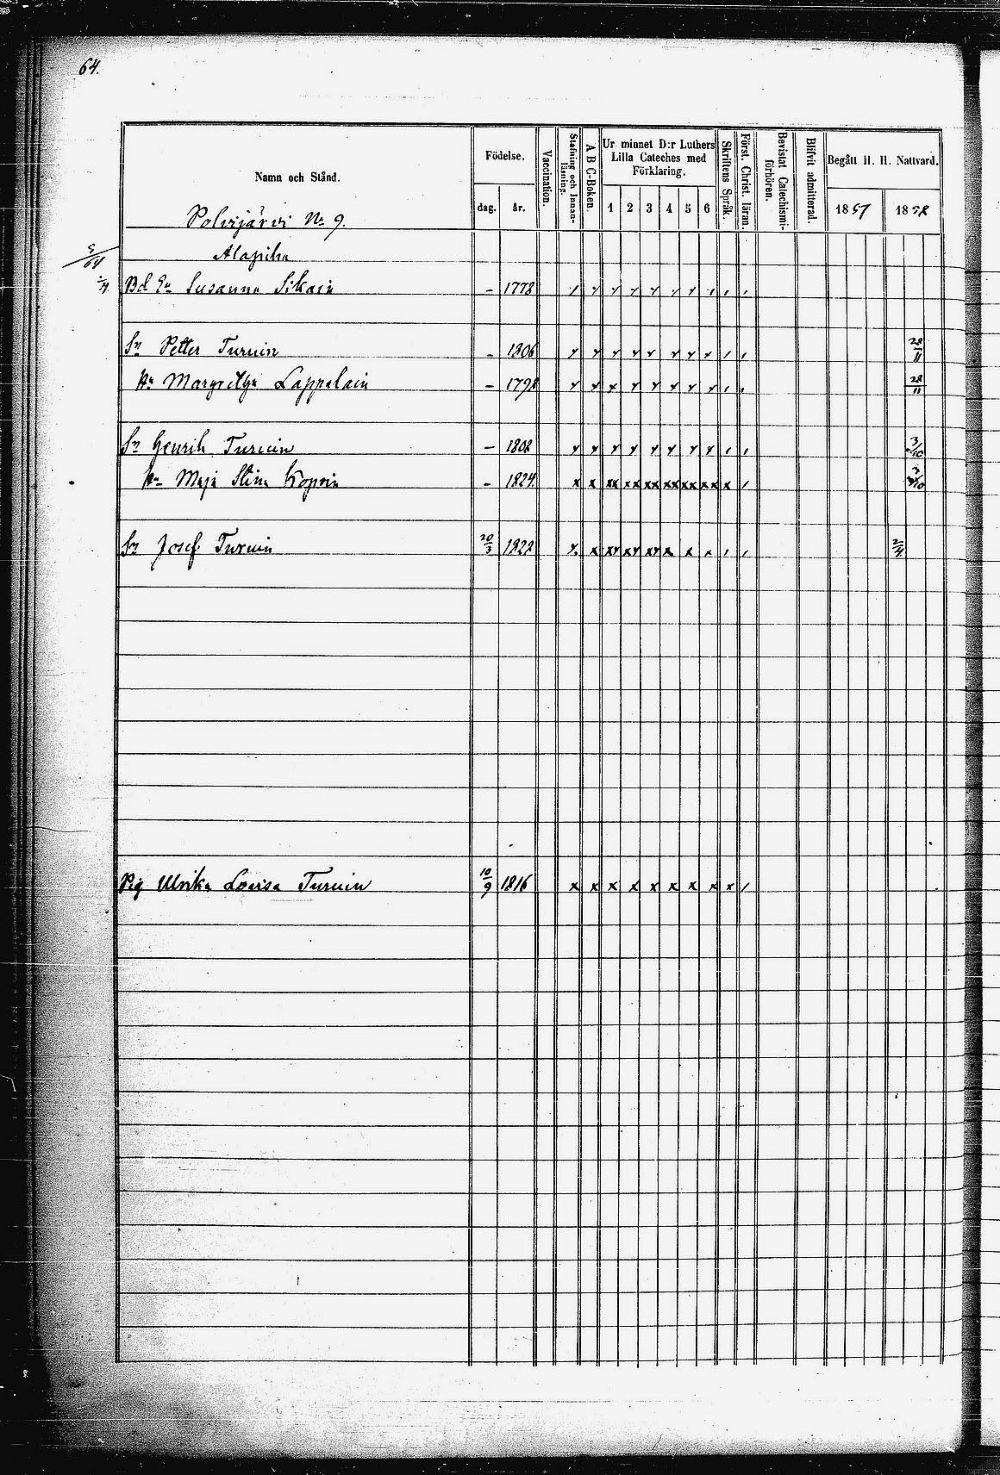 64.
Namn och Stånd.
Födelse.
dag. år.
Vaccination.
Stafning och Innanläsning.
A B C-Boken.
Ur minnet D:r Luthers Lilla Cateches med Förklaring.
1 2 3 4 5 6
Skriftens Språk.
Först. Christ. läran.
Bevistat Catechismiförhören.
Blifvit admitterad.
Begått H. H. Nattvard.
1857 1858
Polvijärvi No 9.
Alapiha
Susanna Sikain - 1778
Sn Petter Turuin - 1806 28/11
hu Margretha Lappalain - 1798 28/11
Sn Henrik Turuin - 1808 3/10
hu Maja Stina Kopoin - 1824. 3/10
Sn Josef Turuin 20/3 1822 2/4
Pig Ulrika Lovisa Turuin 10/9 1816